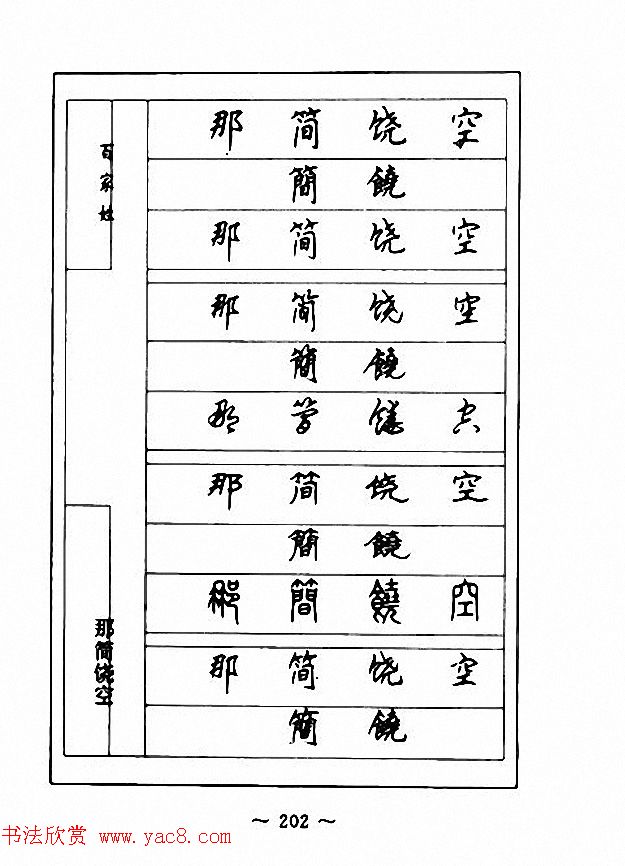 百家姓
那简饶空
簡饒
那简饶空
那简饶空
簡饒
那简饶空
那简饶空
簡饒
那簡饒空
那简饶空
簡饒
那简饶空
～ 202 ～
书法欣赏 www.yac8.com